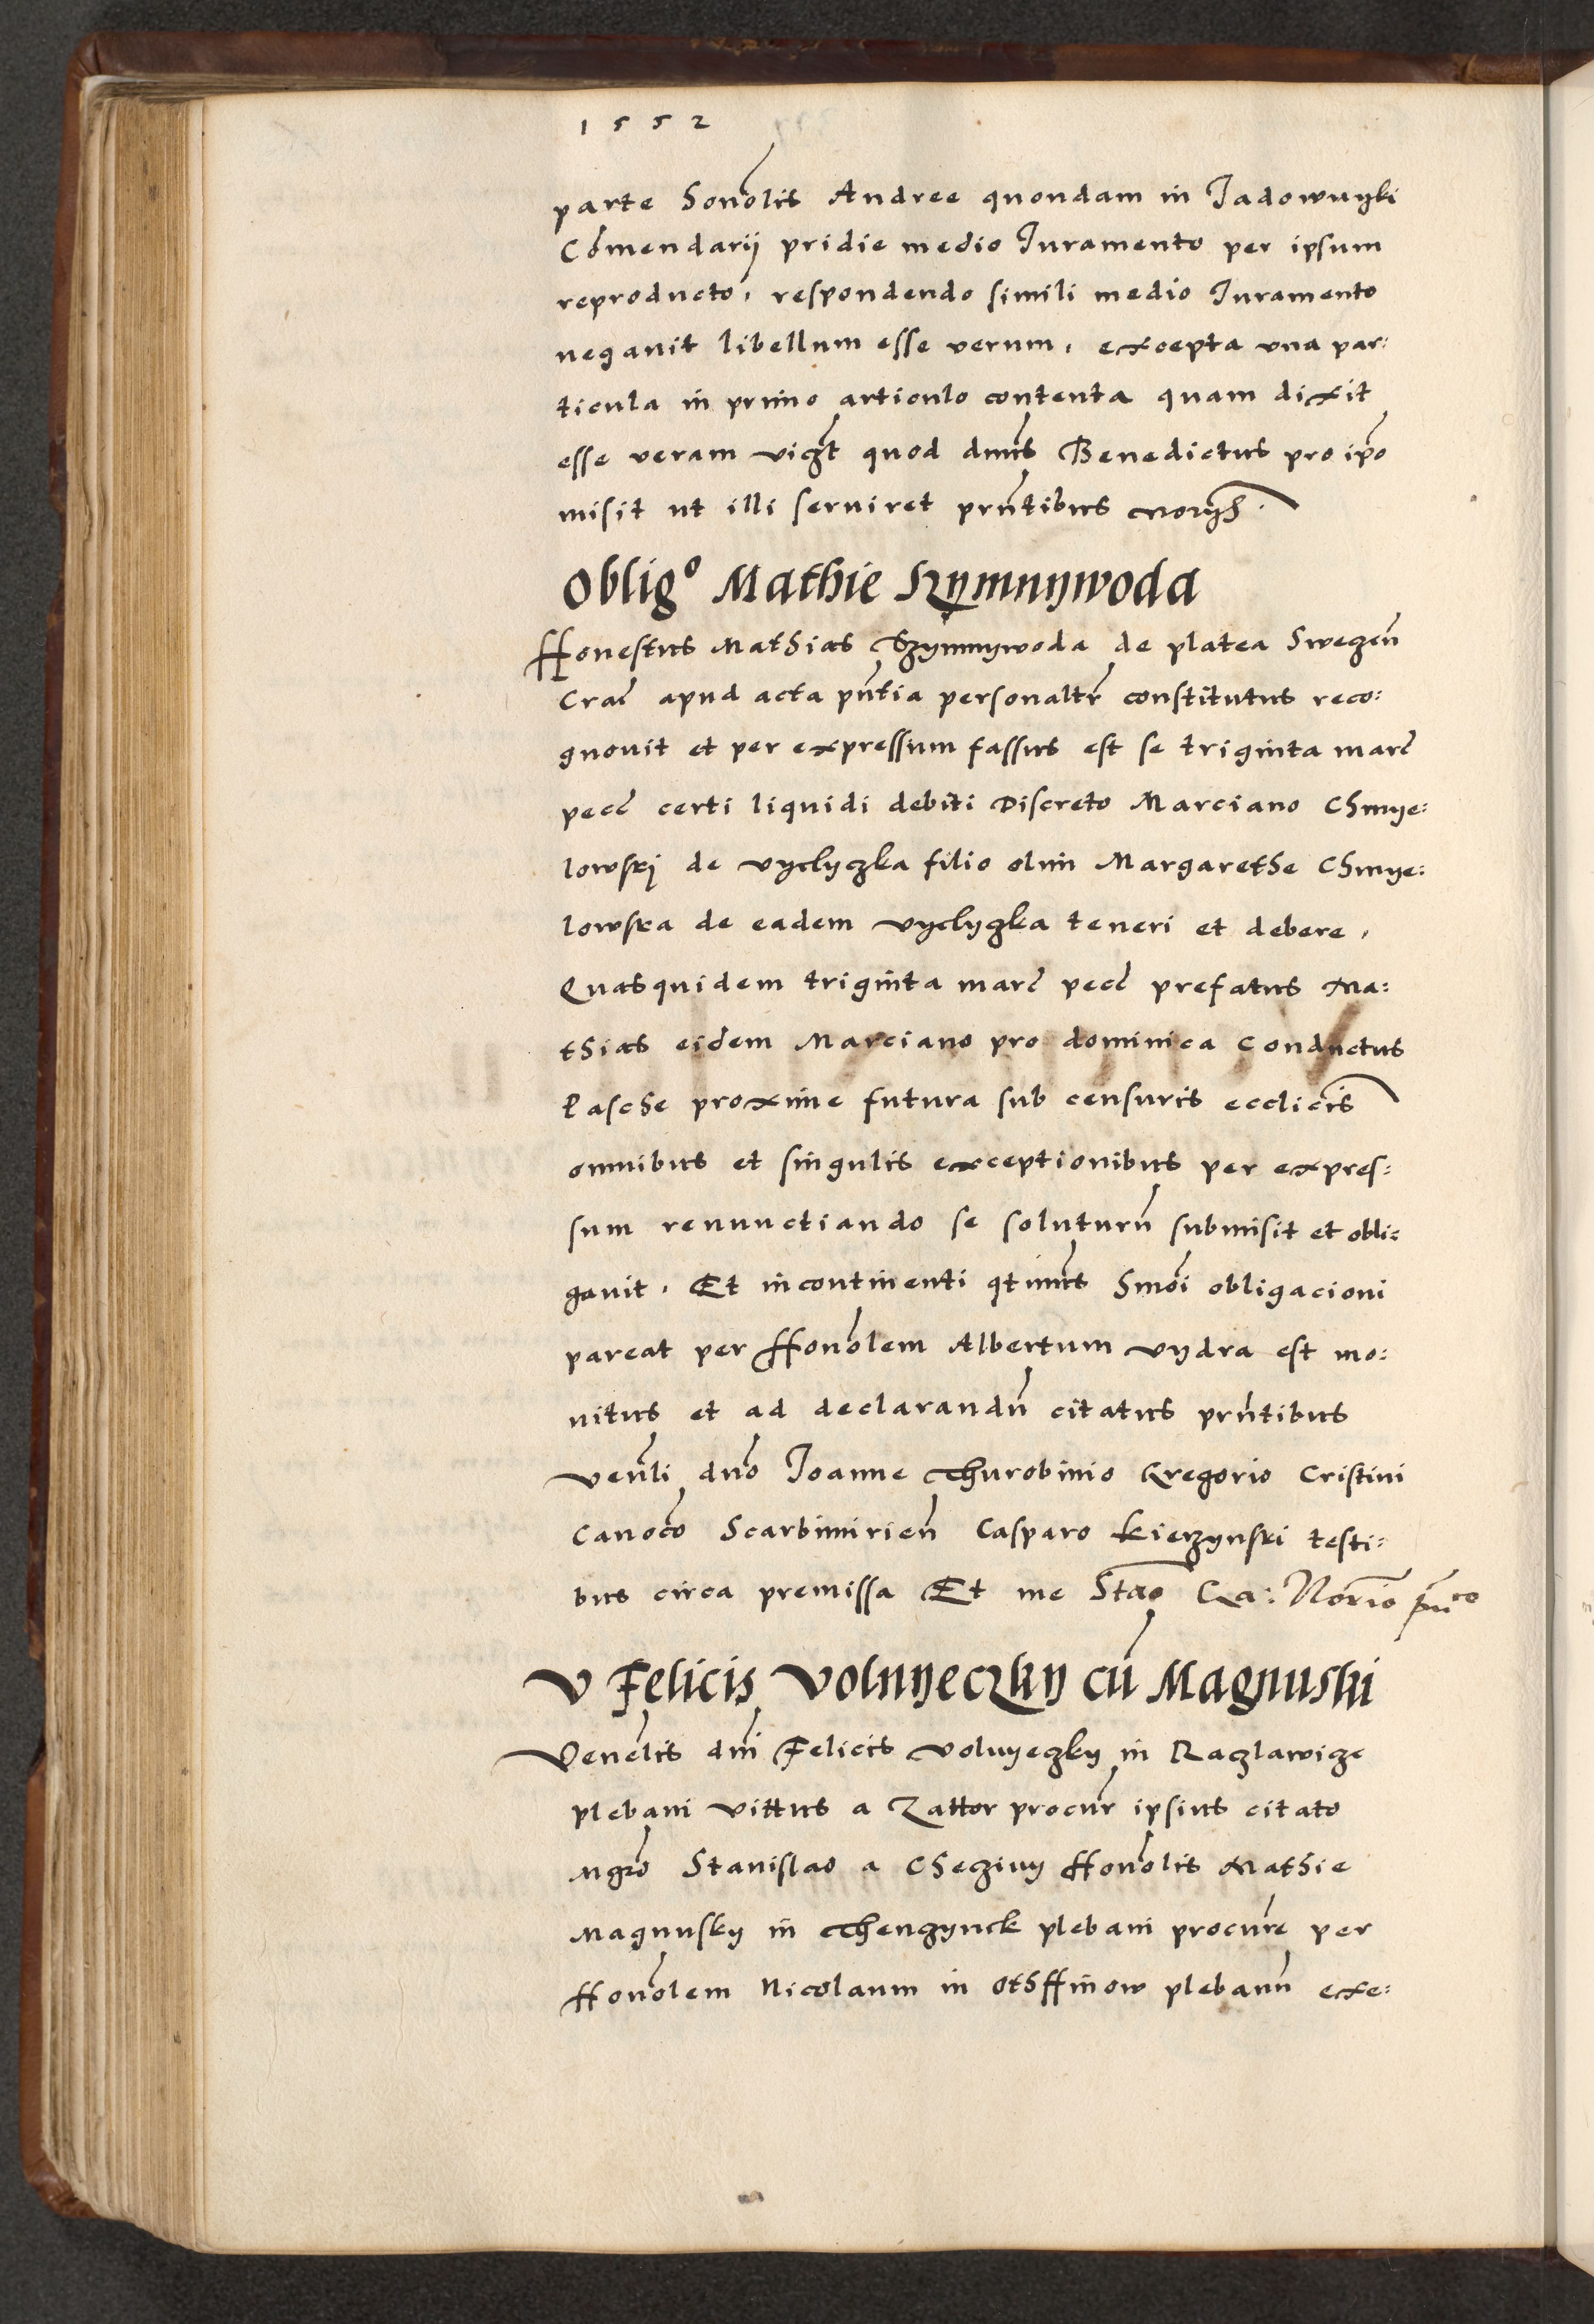 1552
parte honolis Andree quondam in Jadownyki
Comendarij pridie medio Iuramento per ipsum
reproducto, respondendo simili medio Iuramento
negavit libellum esse verum, excepta una par:
ticula in primo articulo contenta quam dixit
esse veram vigt quod dnus Benedictus pro ipo
misit ut illi serviret prntibus
Oblig° Mathie Szymnywoda
Honestus Mathias Szymnywoda de platea Swegen
Crac apud acta pntia personaltr constitutus reco:
gnovit et per expressum fassus est se triginta marc
pecc certi liquidi debiti Discreto Marciano Chmye:
lowskj de vyelyczka filio olim Margarethe Chmye:
lowska de eadem vyelyczka teneri et debere,
Quasquidem triginta marc pecc prefatus Ma:
thias eidem Marciano pro dominica Conductus
Pasche proxime futura sub censuris ecclicis
omnibus et singulis exceptionibus per expres:
sum renunctiando se soluturn submisit et obli:
gavit, Et incontinenti qtinus hmoi obligacioni
pareat per Honolem Albertum vydra est mo:
nitus et ad declarandn citatus prntibus
venli dno Joanne Thurobinio Gregorio Cristini
Canoco Scarbimirien Casparo Kierzynski testi:
bus circa premissa Et me Stao Ra: Norio pnco
V Felicis Volnyeczky cu Magnuski
Venelis dni Felicis volnyeczky in Raczlawicze
plebani vittus a Zattor procur ipsius citato
Mgro Stanislao a Checziny Honolis Mathie
Magnusky in Thenczynek plebani procure per
Honolem Nicolaum in othffinow plebann exe: